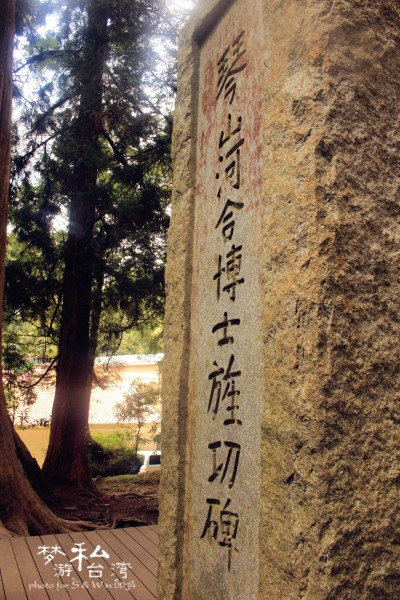 琴山河合博士旌功碑
梦私
游台湾
photo for S & W in 2014